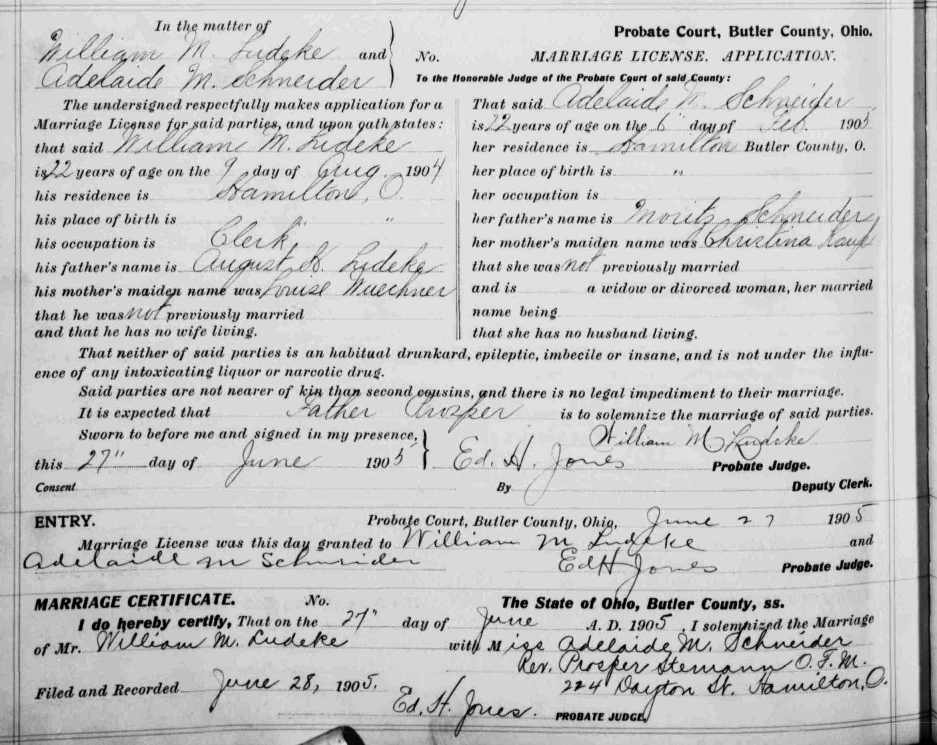 In the matter of
William M. Ludeke and
Adelaide M. Schneider
Probate Court, Butler County, Ohio.
No. MARRIAGE LICENSE. APPLICATION.
To the Honorable Judge of the Probate Court of said County:
The undersigned respectfully makes application for a
Marriage License for said parties, and upon oath states:
that said William M. Ludeke
is 22 years of age on the 9 day of Aug. 1904
his residence is Hamilton, O.
his place of birth is "
his occupation is Clerk
his father's name is August H. Ludeke
his mother's maiden name was Louise Wuechner
that he was not previously married
and that he has no wife living.
That said Adelaide M. Schneider
is 22 years of age on the 6" day of Feb. 1905
her residence is Hamilton Butler County, O.
her place of birth is "
her occupation is
her father's name is Moritz Schneider
her mother's maiden name was Christina
that she was not previously married
and is a widow or divorced woman, her married
name being
that she has no husband living.
That neither of said parties is an habitual drunkard, epileptic, imbecile or insane, and is not under the influ-
ence of any intoxicating liquor or narcotic drug.
Said parties are not nearer of kin than second cousins, and there is no legal impediment to their marriage.
It is expected that Father Prosper is to solemnize the marriage of said parties.
Sworn to before me and signed in my presence, William M Ludeke
this 27" day of June 1905 Ed. H. Jones Probate Judge.
Consent By Deputy Clerk.
ENTRY. Probate Court, Butler County, Ohio, June 27 1905
Marriage License was this day granted to William M Ludeke and
Adelaide M Schneider Ed H Jones Probate Judge.
MARRIAGE CERTIFICATE. No. The State of Ohio, Butler County, ss.
I do hereby certify, That on the 27" day of June A. D. 1905, I solemnized the Marriage
of Mr. William M. Ludeke with Miss Adelaide M. Schneider
Rev. Prosper Stemann O. F. M.
224 Dayton St. Hamilton, O.
Filed and Recorded June 28, 1905.
Ed. H. Jones. PROBATE JUDGE.